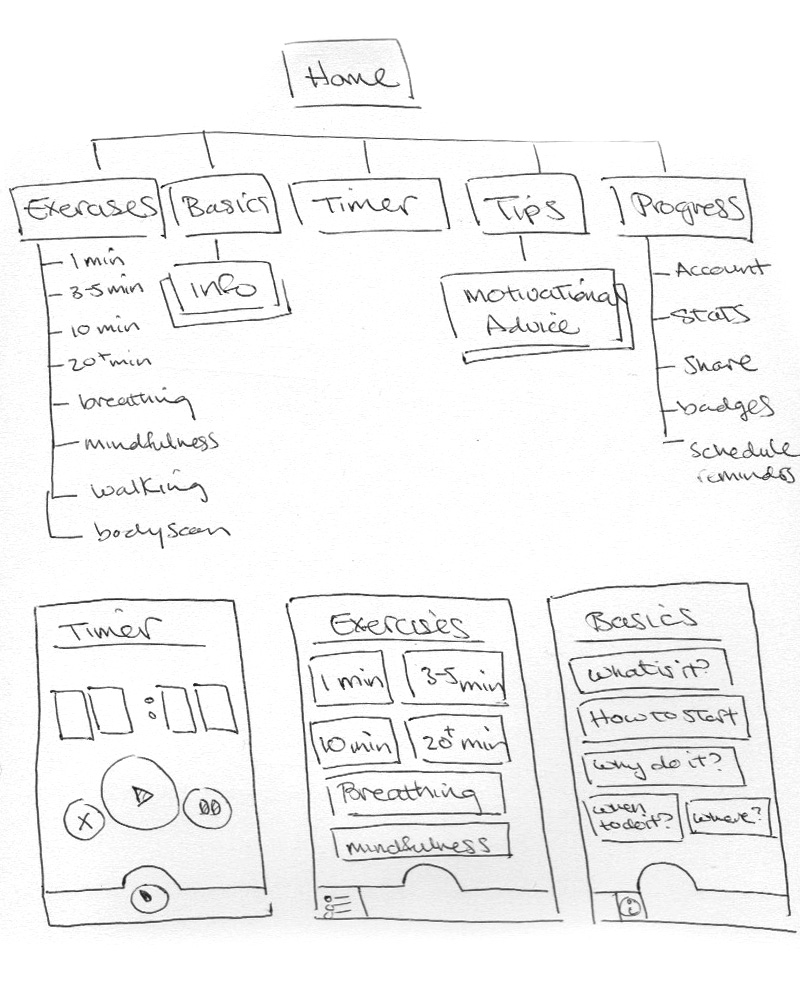 Home
Exercises
Basics
Timer
Tips
Progress
1 min
3-5 min
10 min
20+ min
breathing
mindfulness
walking
bodyscan
info
Motivational
Advice
Account
Stats
Share
badges
Schedule
reminders
Timer
:
X
00
Exercises
1 min
3-5 min
10 min
20+ min
Breathing
mindfulness
Basics
what is it?
How to start
why do it?
when
to do it?
where?
i